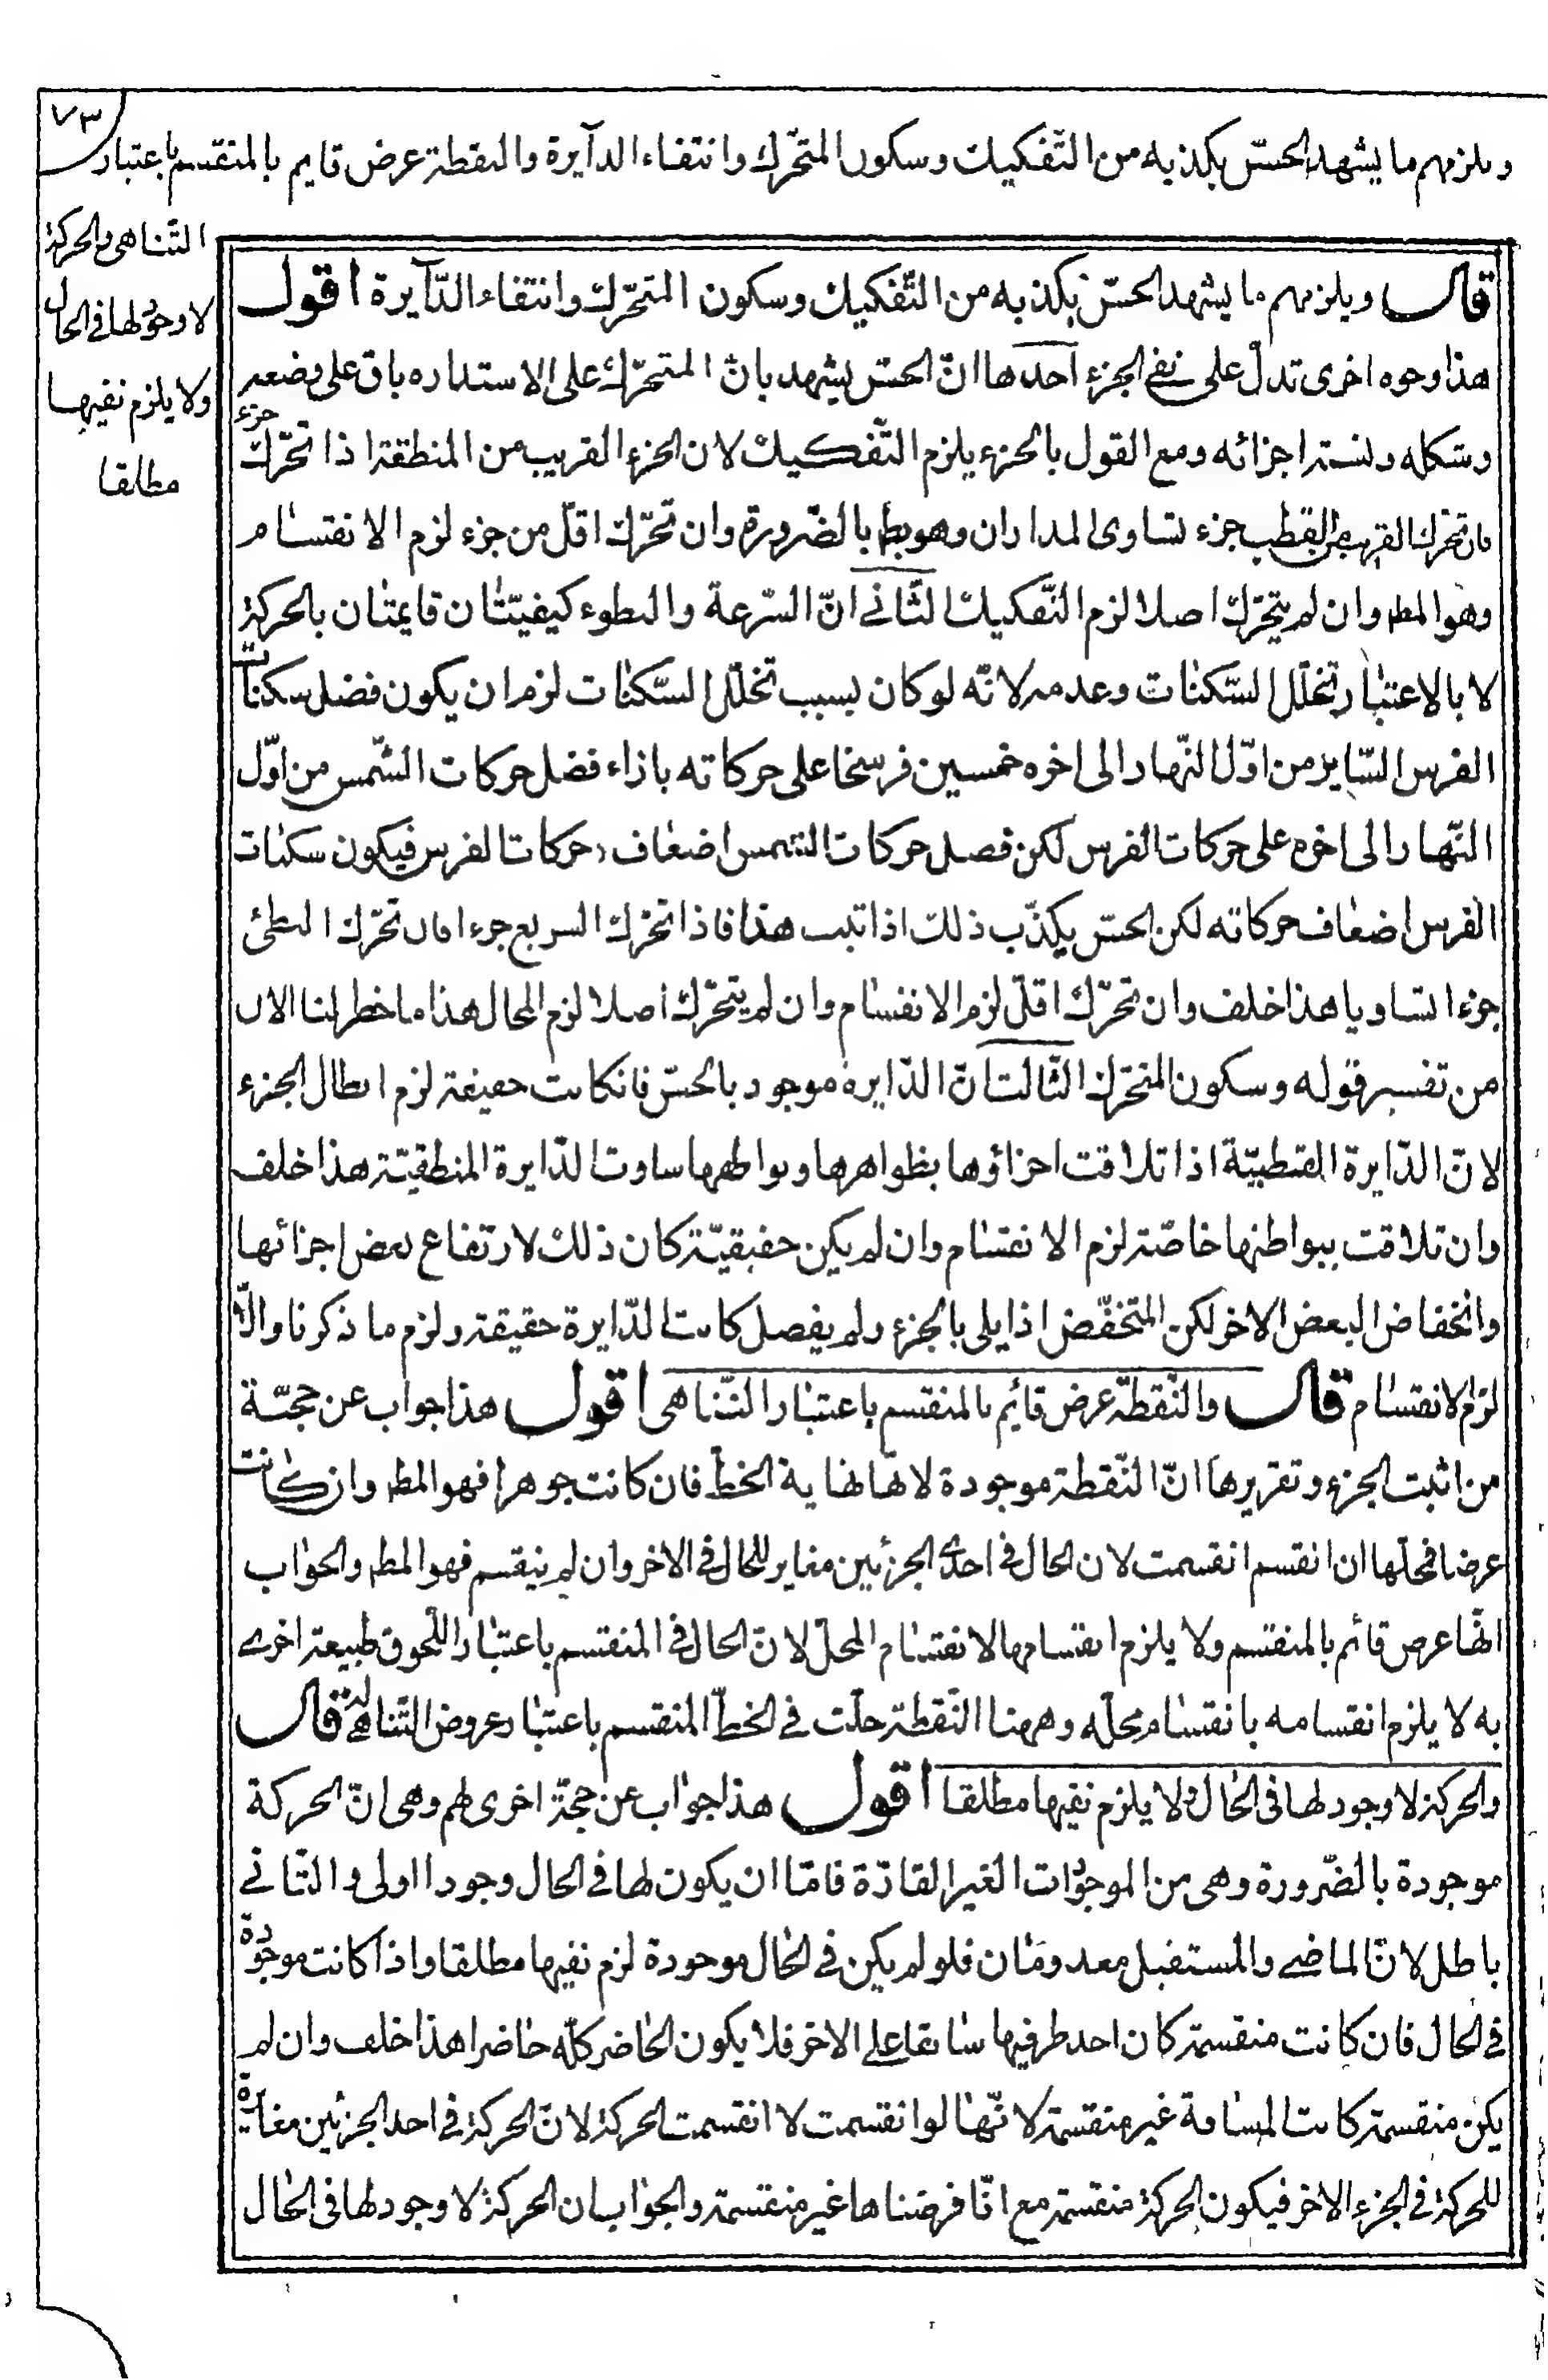 ٧٣
ويلزمهم ما يشهد الحسّ بكذبه من التّفكيك وسكون المتحرّك وانتفاء الدآيرة والنقطة عرض قايم بالمنقسم باعتبار
التّناهى والحركة
لا وجود لها فى الحال
ولا يلزم نفيها
مطلقا
قال ويلزمهم ما يشهد الحسّ بكذبه من التّفكيك وسكون المتحرّك وانتفاء الدّآيرة اقول
هذا وجوه اخرى تدلّ على نفى الجزء احدها انّ الحسّ يشهد بانّ المتحرّك على الاستداره باق على وضعه
وشكله ونسبة اجزائه ومع القول بالجزء يلزم التّفكيك لان الجزء القريب من المنطقة اذا تحرّك جزء
فان تحرّك القريب من القطب جزء تساوى المداران وهو بط بالضّرورة وان تحرّك اقلّ من جزء لزم الانقسام
وهو المط وان لم يتحرّك اصلا لزم التّفكيك الثّانى انّ السّرعة والبطوء كيفيّتان قايمتان بالحركة
لا بالاعتبار تخلّل السّكنات وعدمه لانّه لو كان بسبب تخلّل السّكنات لزم ان يكون فضل سكنات
الفرس السّاير من اوّل النّهار الى اخره خمسين فرسخا على حركاته بازاء فضل حركات الشّمس من اوّل
النّهار الى اخره على حركات الفرس لكن فضل حركات الشمس اضعاف حركات الفرس فيكون سكنات
الفرس اضعاف حركاته لكن الحسّ يكذّب ذلك اذا ثبت هذا فاذا تحرّك السريع جزءا فان تحرّك البطئ
جزءا تساويا هذا خلف وان تحرّك اقلّ لزم الانقسام وان لم يتحرّك اصلا لزم المحال هذا ما خطر لنا الان
من تفسير قوله وسكون المتحرّك الثّالث انّ الدّايرة موجود بالحسّ فان كانت حقيقة لزم ابطال الجزء
لانّ الدّايرة القطبيّة اذا تلاقت اجزاؤها بظواهرها وبواطنها ساوت الدّايرة المنطقيّة هذا خلف
وان تلاقت ببواطنها خاصّة لزم الانقسام وان لم يكن حقيقيّة كان ذلك لارتفاع بعض اجزائها
وانخفاض البعض الاخر لكن المتخفّض اذا يلى بالجزء ولم يفصل كانت الدّايرة حقيقة ولزم ما ذكرنا والّا
لزم الانقسام قال والنّقطة عرض قائم بالمنقسم باعتبار التّناهى اقول هذا جواب عن حجّة
من اثبت الجزء وتقريرها انّ النّقطة موجودة لانّها نهاية الخطّ فان كانت جوهرا فهو المط وان كانت
عرضا فمحلّها ان انقسم انقسمت لان الحال فى احدى الجزئين مغاير للحال فى الاخر وان لم ينقسم فهو المط والجواب
انّها عرض قائم بالمنقسم ولا يلزم انقسامها لانقسام المحلّ لانّ الحال فى المنقسم باعتبار اللّحوق طبيعة اخرى
به لا يلزم انقسامه بانقسام محلّه وههنا النّقطة حلّت فى الخطّ المنقسم باعتبار عروض التّناهى له قال
والحركة لا وجود لها فى الحال ولا يلزم نفيها مطلقا اقول هذا جواب عن حجّة اخرى لهم وهى انّ الحركة
موجودة بالضّرورة وهى من الموجودات الغير القارّة فامّا ان يكون لها فى الحال وجودا اولى والثّانى
باطل لانّ الماضى والمستقبل معدومان فلو لم يكن فى الحال موجودة لزم نفيها مطلقا واذا كانت موجودة
فى الحال فان كانت منقسمة كان احد طرفيها سابقا على الاخر فلا يكون الحاضر كلّه حاضرا هذا خلف وان لم
يكن منقسمة كانت المسافة غير منقسمة لانّها لو انقسمت لا انقسمت الحركة لانّ الحركة فى احد الجزئين مغايرة
للحركة فى الجزء الاخر فيكون الحركة منقسمة مع انّا فرضناها غير منقسمة والجواب ان الحركة لا وجود لها فى الحال